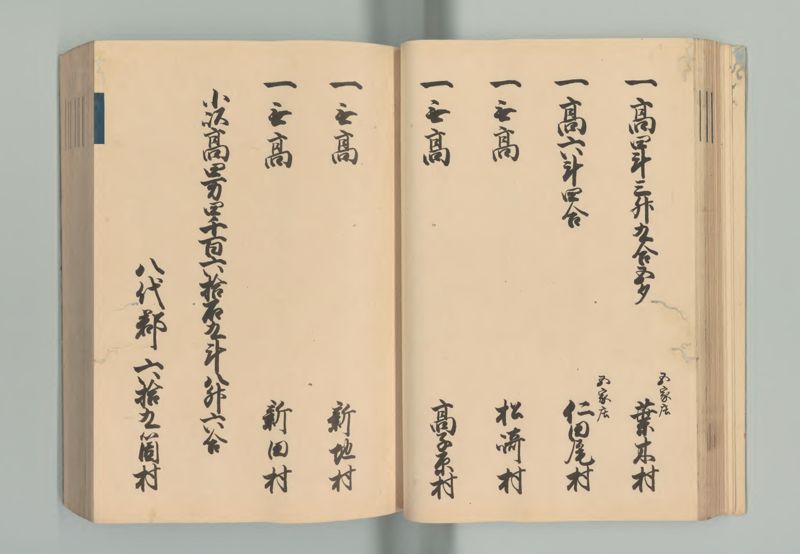 一高四斗三升九合五夕
五家庄
葉木村
一高六斗四合
五家庄
仁田尾村
一無高
松崎村
一無高
高子原村
一無高
新地村
一無高
新田村
小以高四万四千百六拾石九斗八升六合
八代郡 六拾九箇村